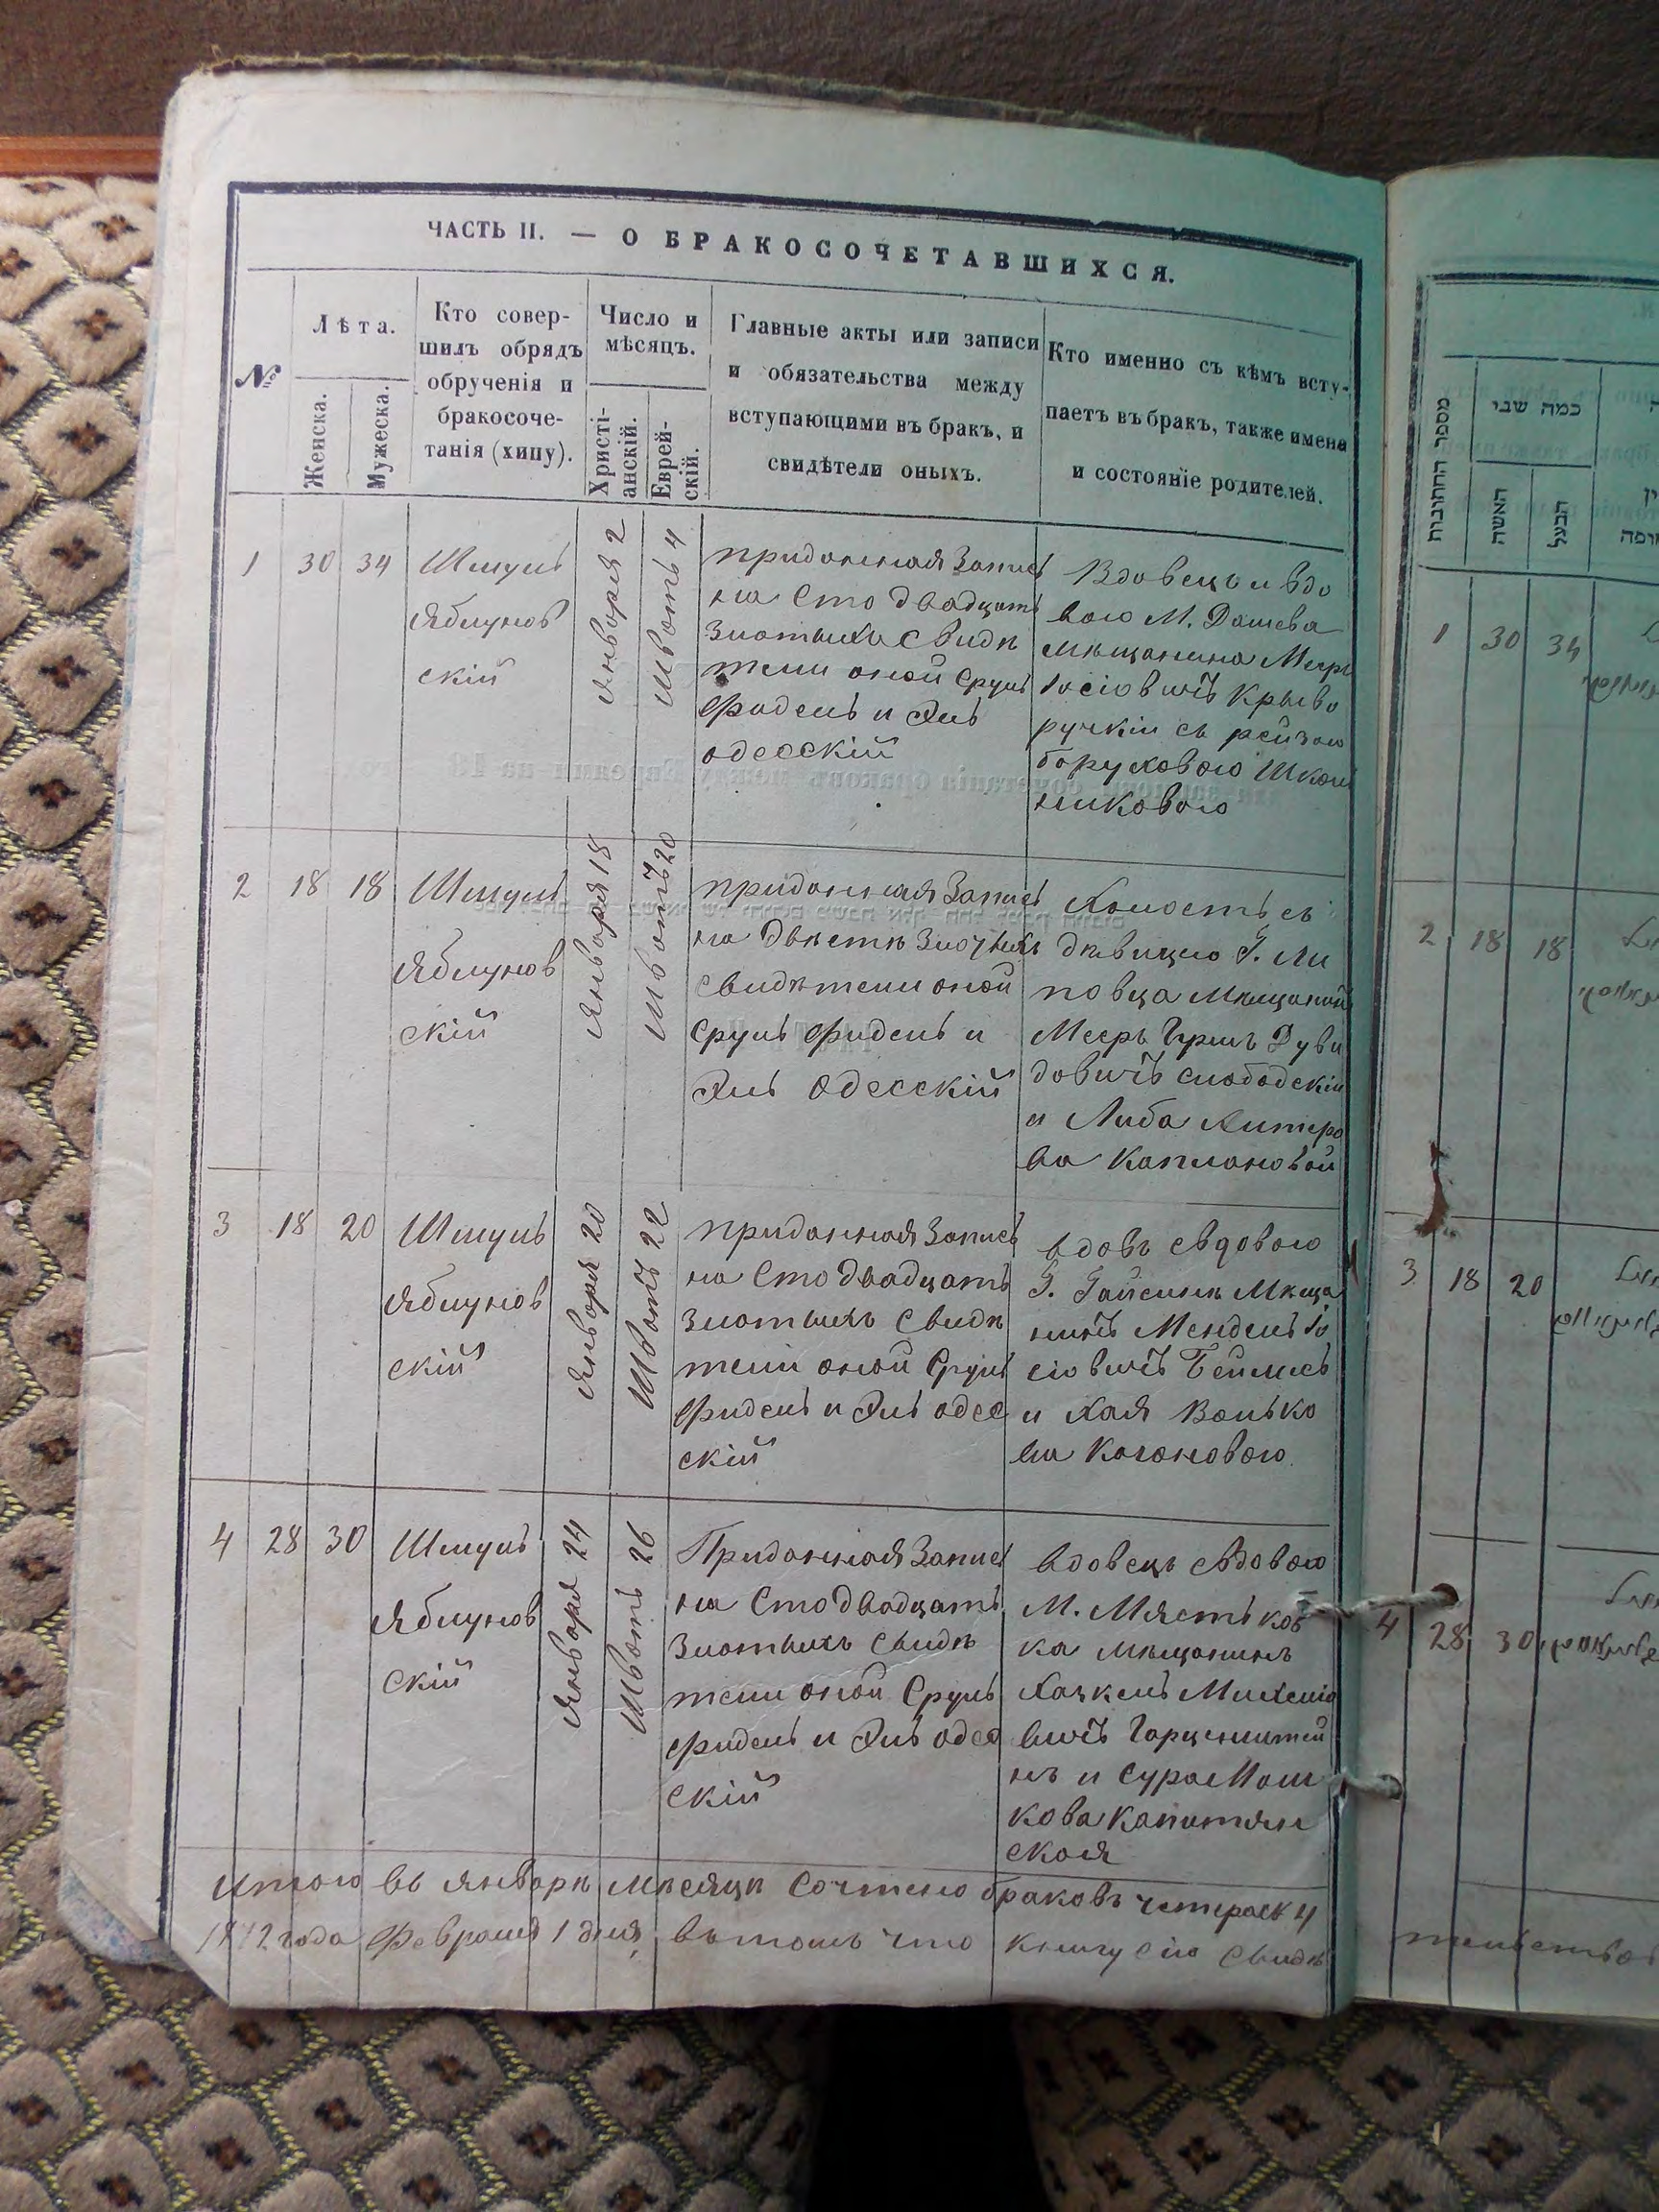 ЧАСТЬ II. — О БРАКОСОЧЕТАВШИХСЯ.
№
Лѣта.
Женска.
Мужеска.
Кто совер-
шилъ обрядъ
обрученія и
бракосоче-
танія (хипу).
Число и
мѣсяцъ.
Христі-
анскій.
Еврей-
скій.
Главные акты или записи
и обязательства между
вступающими въ бракъ, и
свидѣтели оныхъ.
Кто именно съ кѣмъ всту-
паетъ въ бракъ, также имена
и состояніе родителей.
1
30
34
Шмуль
Яблунов
скій
Января 2
Шватъ 4
приданная Запись
на Сто двадцать
Злотыхъ Свидѣ
тели оной Сруль
Фидель и Эль
одесскій
Вдовецъ и вдо
вою М. Дашева
мѣщанина Меер
Іосіовичъ Крыво
ручкій съ рейзою
борусовою Школь
никовою
2
18
18
Шмуль
Яблунов
скій
Января 18
Шватъ 20
приданная Запись
на Двѣстѣ Злотыхъ
Свидѣтели оной
Сруль Фидель и
Эль Одесскій
Холостъ съ
дѣвицею Г. Ли
повца Мѣщаний
Меерь Гершъ Дуви
довичъ слободскій
и Либа
ва Каплановой
3
18
20
Шмуль
Яблунов
скій
Января 20
Шватъ 22
приданная Запись
на Сто двадцать
Злотыхъ Свидѣ
тели оной Сруль
Фидель и Эль одес
скій
вдовъ свдовою
Г. Гайсинѣ Мѣща
нинъ Мендель Іо
сіовичъ Беймись
и Хая Волько
ва Кагоновою
4
28
30
Шмуль
Яблунов
скій
Января 24
Шватъ 26
Приданная Запись
на Сто двадцать
Злотыхъ Свидѣ
тели оной Сруль
Фидель и Эль одес
скій
вдовецъ свдовою
М. Мястьков
ка мѣщанинъ
Хацкель Михеліо
вичъ Гарценштей
нъ и Сура Мош
кова Капитян
ская
Итого въ январѣ мѣсяцѣ Сочтено браковъ четыре 4
года Февраля 1 дня, въ томъ что книгу сію Свидѣ
מספר החתונות
כמה שני
האשה
הבעל
1
30
34
2
18
18
3
18
20
4
28
30
тельствов